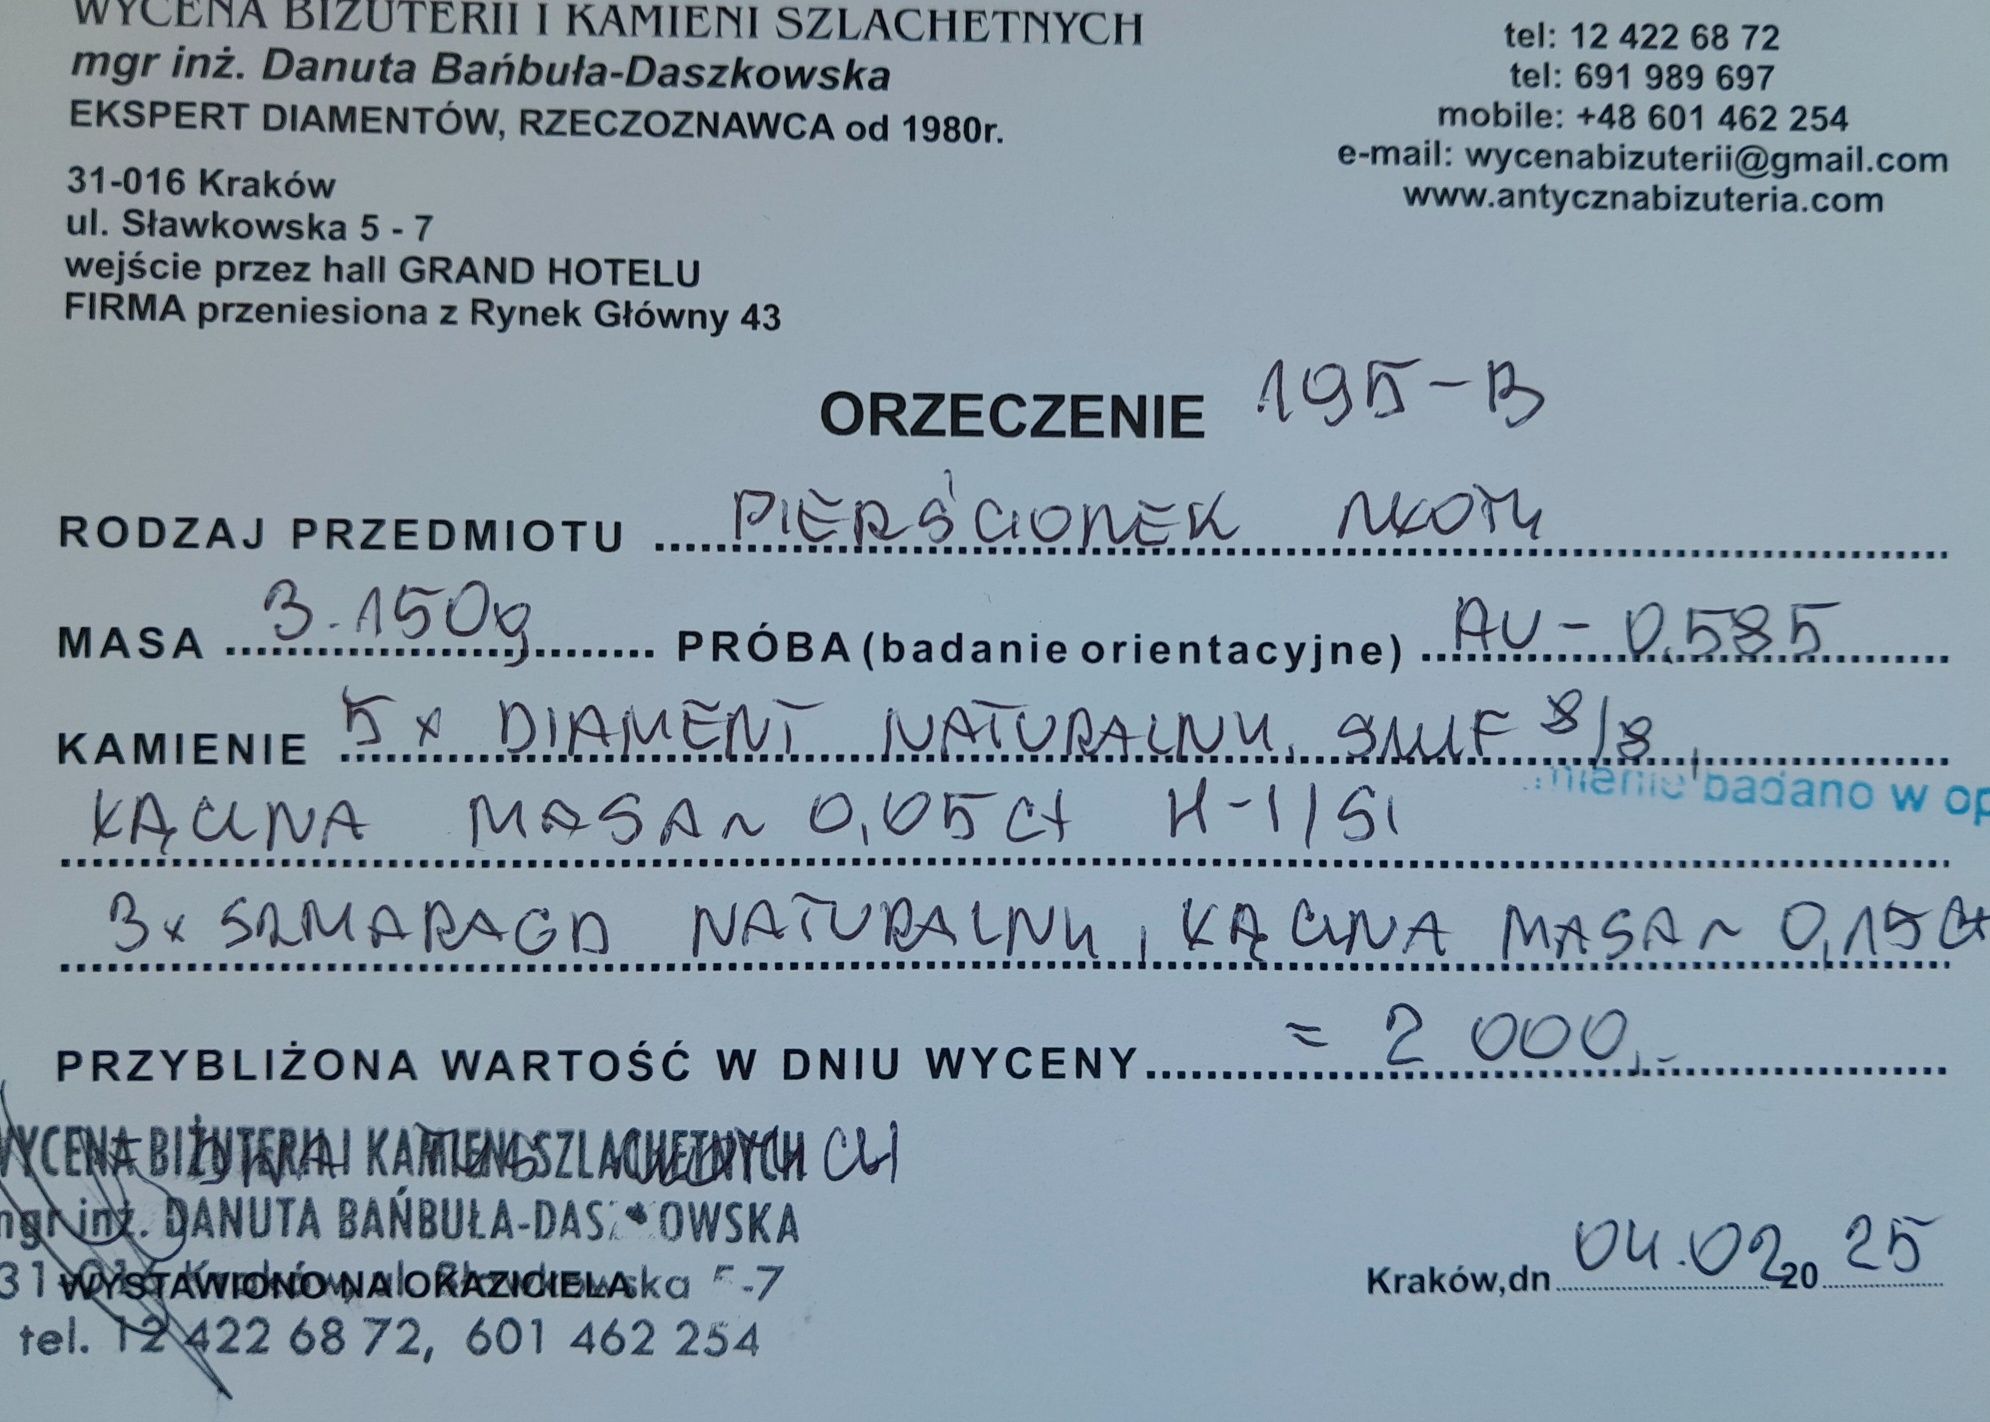 WYCENA BIŻUTERII I KAMIENI SZLACHETNYCH
mgr inż. Danuta Bańbuła-Daszkowska
EKSPERT DIAMENTÓW, RZECZOZNAWCA od 1980r.
31-016 Kraków
ul. Sławkowska 5 - 7
wejście przez hall GRAND HOTELU
FIRMA przeniesiona z Rynek Główny 43
tel: 12 422 68 72
tel: 691 989 697
mobile: +48 601 462 254
e-mail: wycenabizuterii@gmail.com
www.antycznabizuteria.com
ORZECZENIE 195-B
RODZAJ PRZEDMIOTU PIERŚCIONEK ZŁOTY
MASA 3.150g PRÓBA (badanie orientacyjne) AU - 0,585
KAMIENIE 5 x DIAMENT NATURALNY, SZLIF 8/8
badano w op
ŁĄCZNA MASA ~ 0,05 ct H-I/SI
3x SZMARAGD NATURALNY, ŁĄCZNA MASA ~ 0,15 ct
PRZYBLIŻONA WARTOŚĆ W DNIU WYCENY = 2 000,-
DWA TYS ZŁOTYCH
WYCENA BIŻUTERII I KAMIENI SZLACHETNYCH
mgr inż. DANUTA BAŃBUŁA-DASZKOWSKA
31-016 Kraków, ul. Sławkowska 5-7
WYSTAWIONO NA OKAZICIELA
tel. 12 422 68 72, 601 462 254
Kraków,dn 04.02 20 25